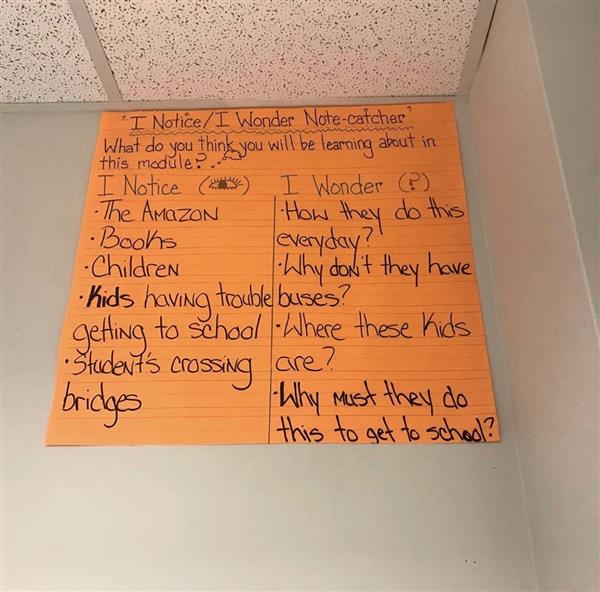 "I Notice/I Wonder Note-catcher"
What do you think you will be learning about in
this module?
I Notice
· The Amazon
· Books
· Children
· Kids having trouble
getting to school
· Student's crossing
bridges
I Wonder (?)
· How they do this
everyday?
· Why don't they have
buses?
· Where these kids
are?
· Why must they do
this to get to school?